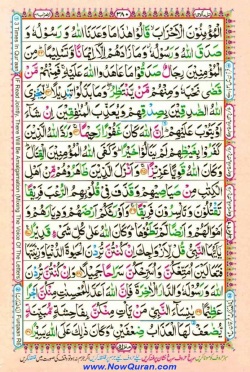 ٣٨٠
الْمُؤْمِنُونَ الْأَحْزَابَ قَالُوا هٰذَا مَا وَعَدَنَا اللّٰهُ وَرَسُولُهٗ وَ
صَدَقَ اللّٰهُ وَرَسُولُهٗ وَمَا زَادَهُمْ اِلَّا اِيْمَانًا وَّتَسْلِيْمًا مِنَ
الْمُؤْمِنِيْنَ رِجَالٌ صَدَقُوْا مَا عَاهَدُوا اللّٰهَ عَلَيْهِ فَمِنْهُمْ مَّنْ
قَضٰى نَحْبَهٗ وَمِنْهُمْ مَّنْ يَّنْتَظِرُ وَمَا بَدَّلُوْا تَبْدِيْلًا لِّيَجْزِيَ
اللّٰهُ الصّٰدِقِيْنَ بِصِدْقِهِمْ وَيُعَذِّبَ الْمُنٰفِقِيْنَ اِنْ شَآءَ
اَوْ يَتُوْبَ عَلَيْهِمْ اِنَّ اللّٰهَ كَانَ غَفُوْرًا رَّحِيْمًا وَرَدَّ اللّٰهُ الَّذِيْنَ
كَفَرُوْا بِغَيْظِهِمْ لَمْ يَنَالُوْا خَيْرًا وَكَفَى اللّٰهُ الْمُؤْمِنِيْنَ الْقِتَالَ
وَكَانَ اللّٰهُ قَوِيًّا عَزِيْزًا وَاَنْزَلَ الَّذِيْنَ ظَاهَرُوْهُمْ مِّنْ اَهْلِ
الْكِتٰبِ مِنْ صَيَاصِيْهِمْ وَقَذَفَ فِيْ قُلُوْبِهِمُ الرُّعْبَ فَرِيْقًا
تَقْتُلُوْنَ وَتَاْسِرُوْنَ فَرِيْقًا وَاَوْرَثَكُمْ اَرْضَهُمْ وَدِيَارَهُمْ وَ
اَمْوَالَهُمْ وَاَرْضًا لَّمْ تَطَـُٔوْهَا وَكَانَ اللّٰهُ عَلٰى كُلِّ شَيْءٍ قَدِيْرًا
يٰٓاَيُّهَا النَّبِيُّ قُلْ لِّاَزْوَاجِكَ اِنْ كُنْتُنَّ تُرِدْنَ الْحَيٰوةَ الدُّنْيَا وَزِيْنَتَهَا
فَتَعَالَيْنَ اُمَتِّعْكُنَّ وَاُسَرِّحْكُنَّ سَرَاحًا جَمِيْلًا وَاِنْ كُنْتُنَّ تُرِدْنَ
اللّٰهَ وَرَسُوْلَهٗ وَالدَّارَ الْاٰخِرَةَ فَاِنَّ اللّٰهَ اَعَدَّ لِلْمُحْسِنٰتِ مِنْكُنَّ اَجْرًا
عَظِيْمًا يٰنِسَآءَ النَّبِيِّ مَنْ يَّاْتِ مِنْكُنَّ بِفَاحِشَةٍ مُّبَيِّنَةٍ
يُّضٰعَفْ لَهَا الْعَذَابُ ضِعْفَيْنِ وَكَانَ ذٰلِكَ عَلَى اللّٰهِ يَسِيْرًا
www.NowQuran.com